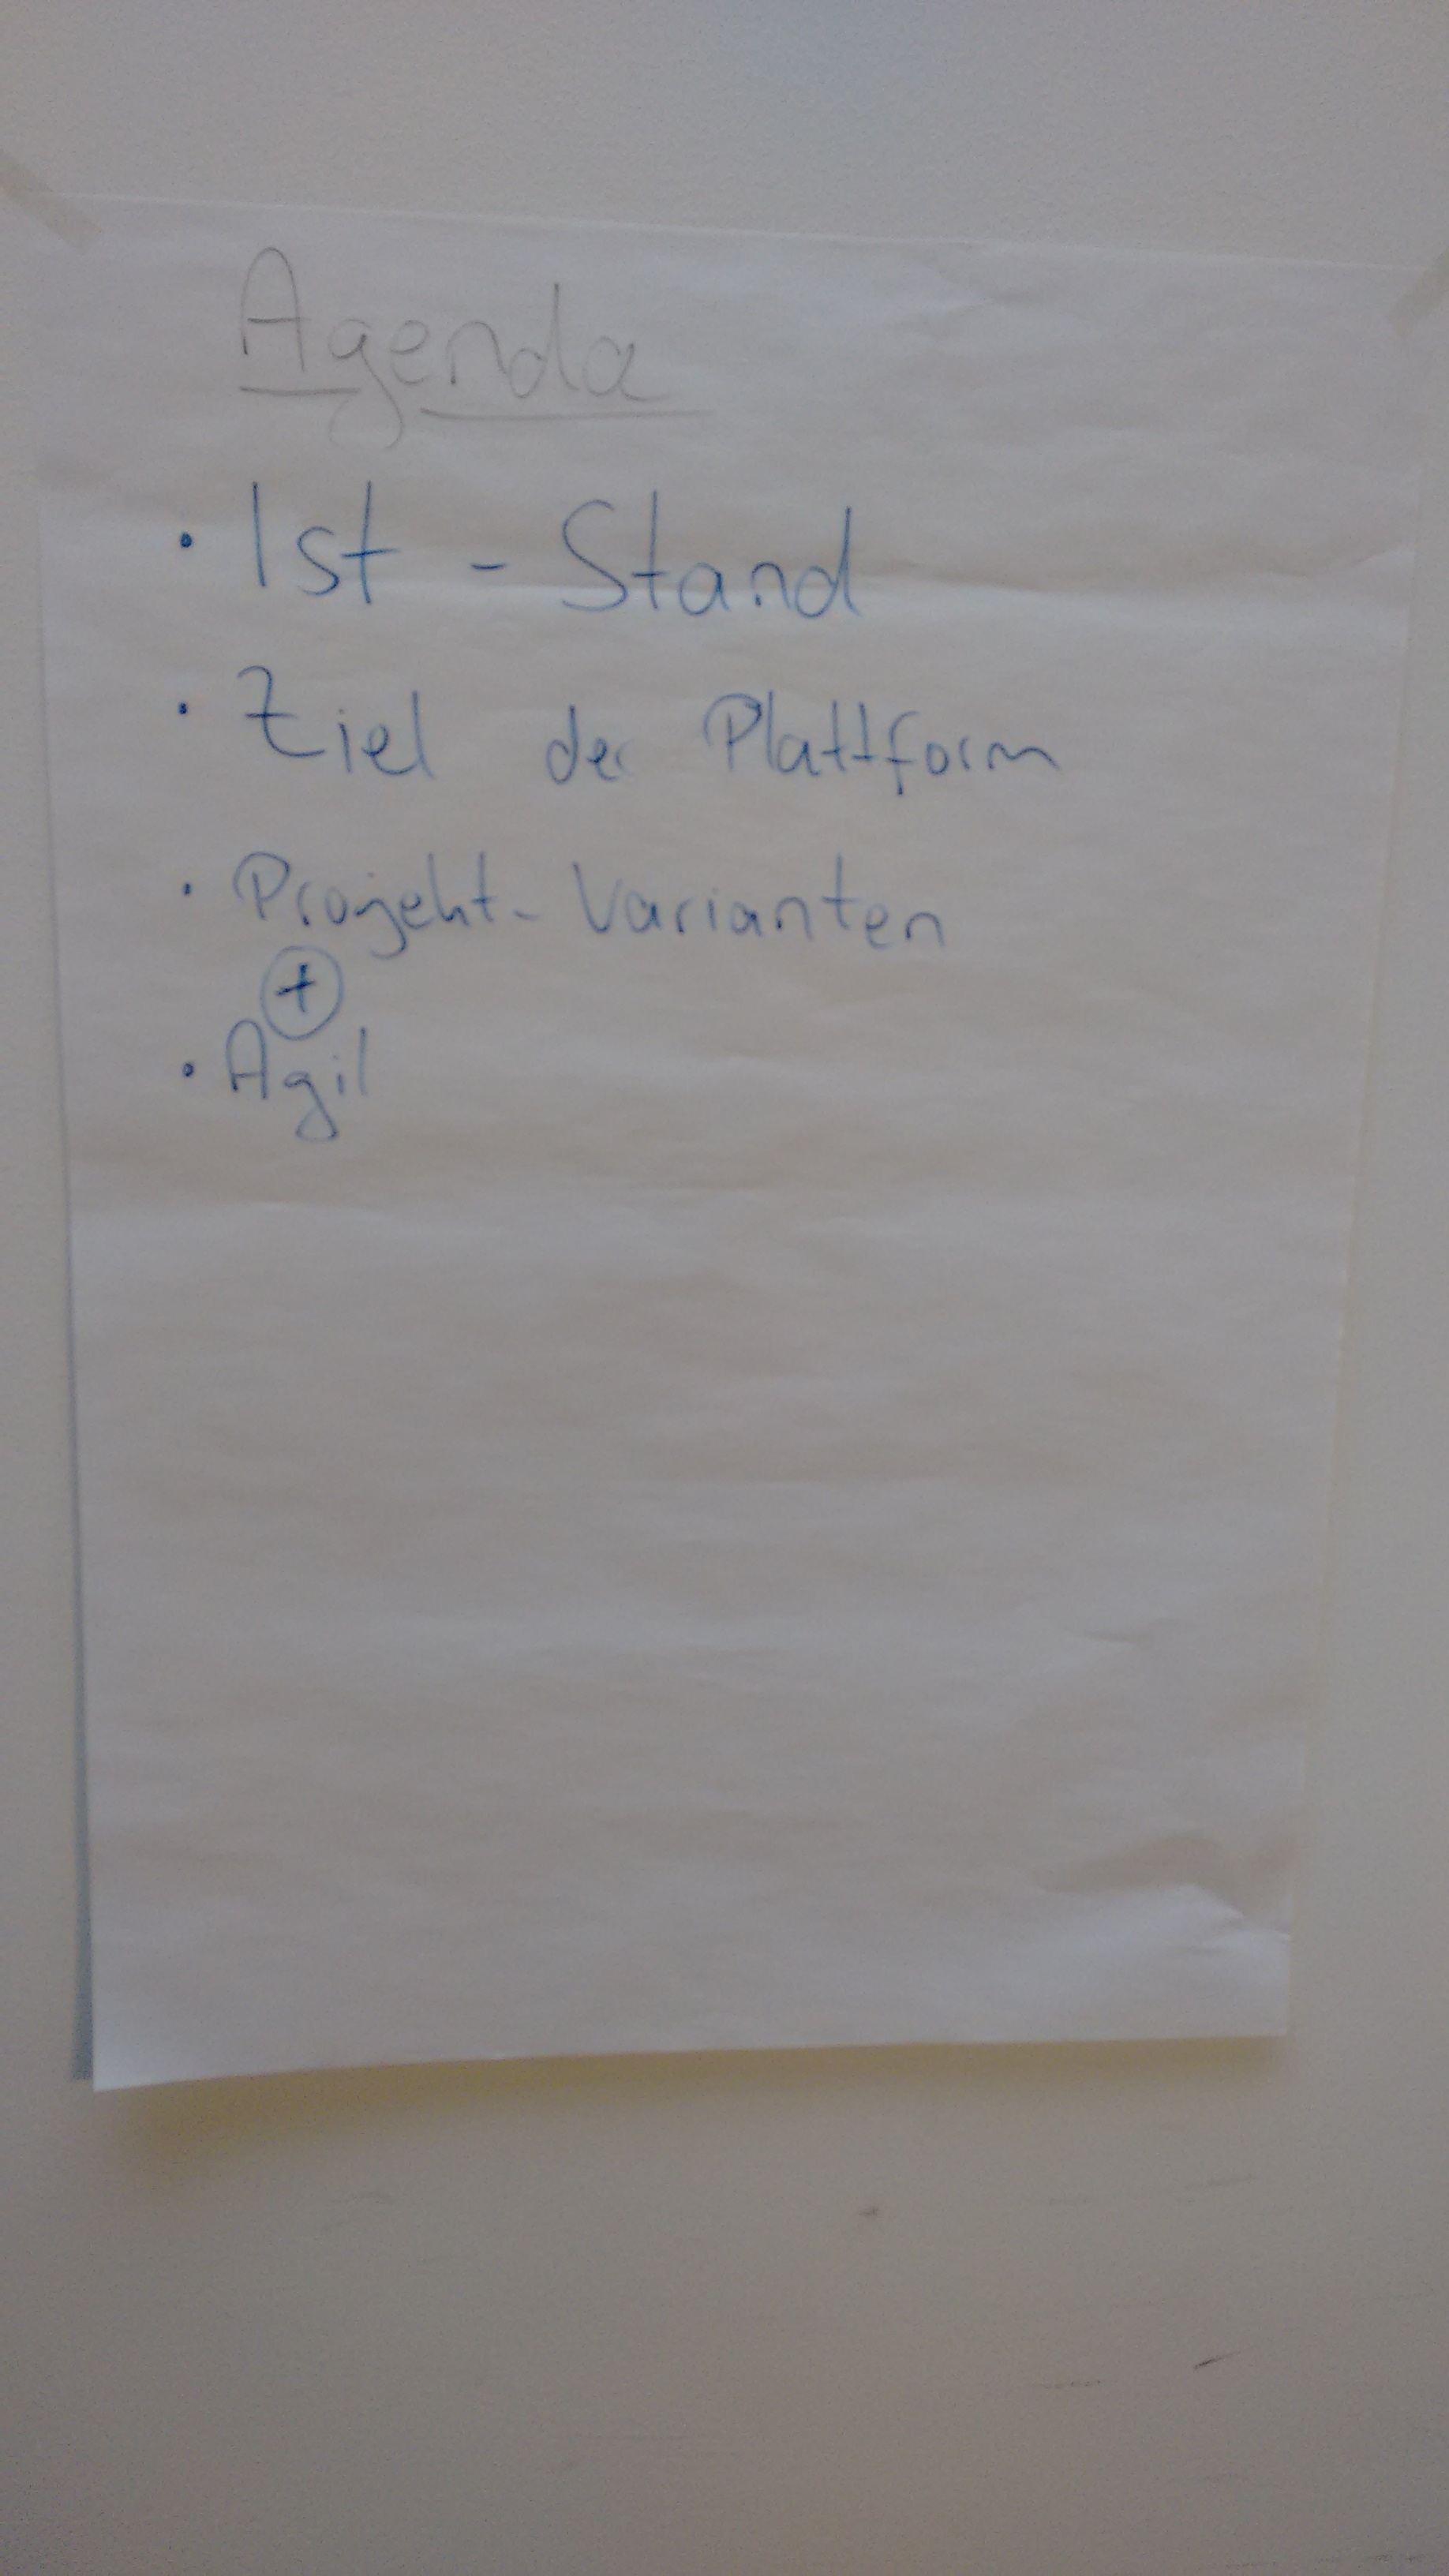 Agenda
• Ist - Stand
• Ziel der Plattform
• Projekt- Varianten
+
• Agil